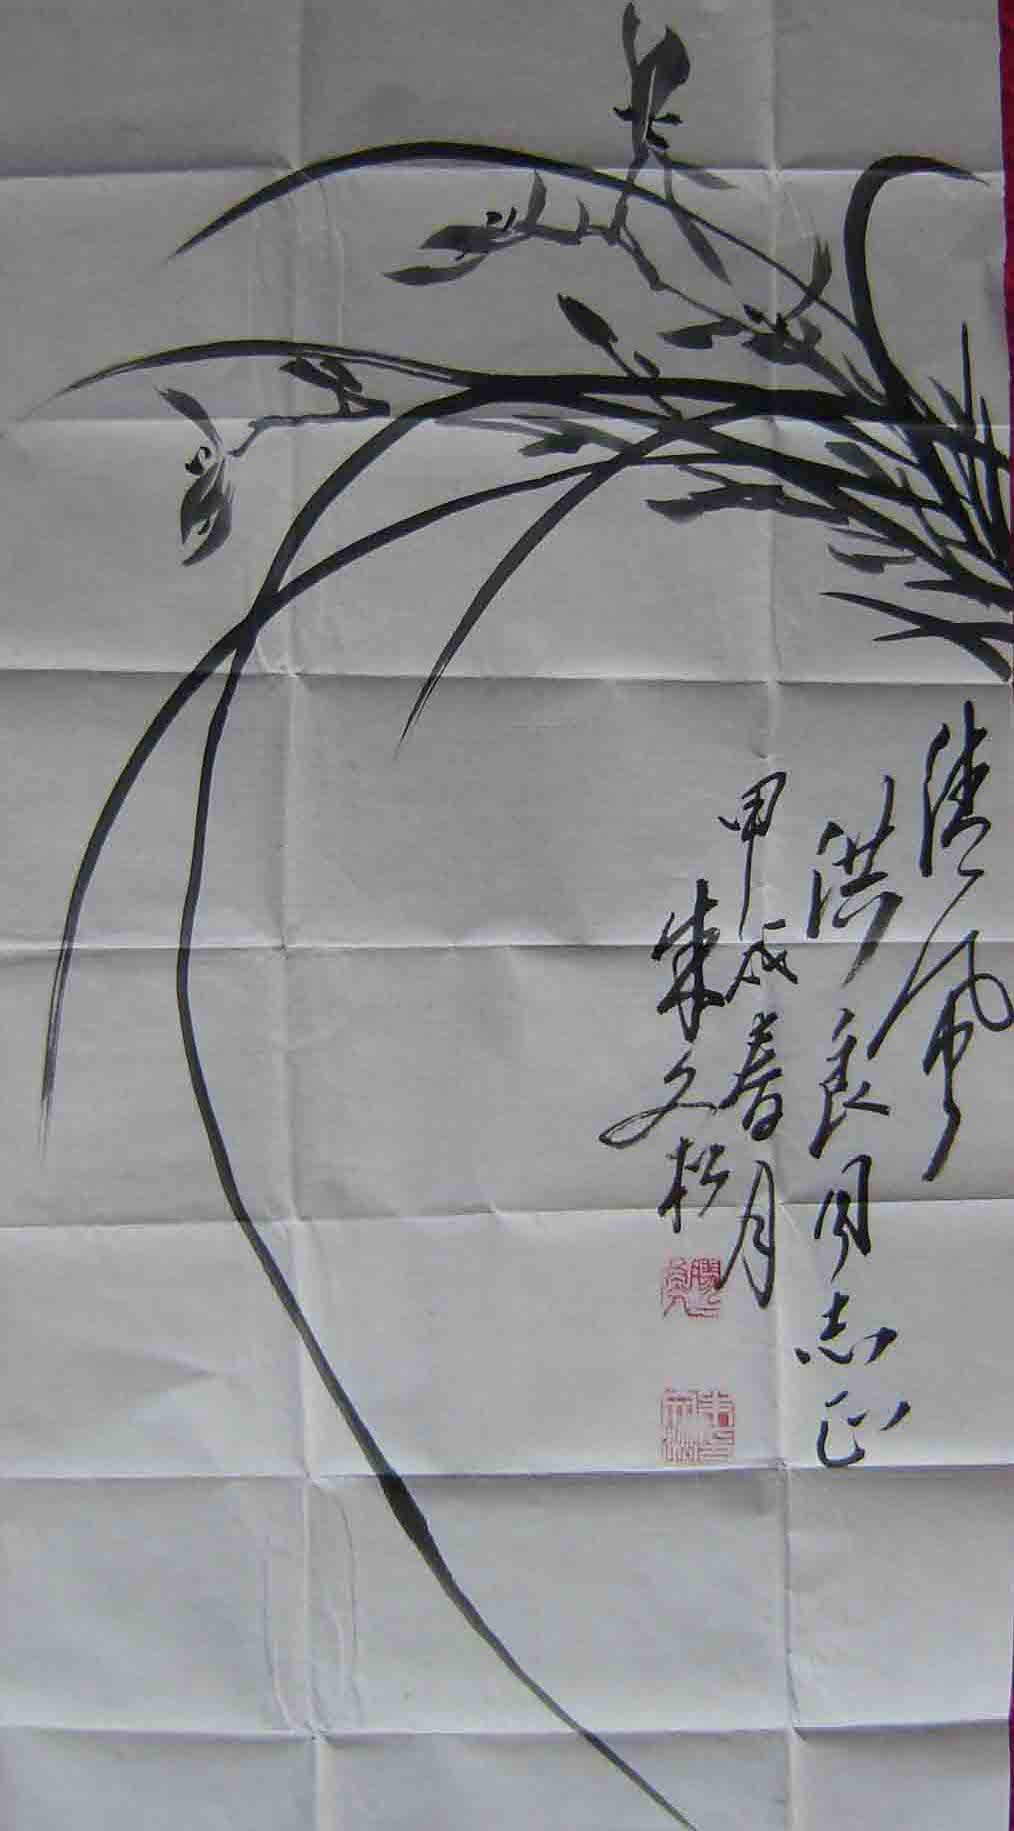 清风
洪良同志正
甲戌春月
朱文松